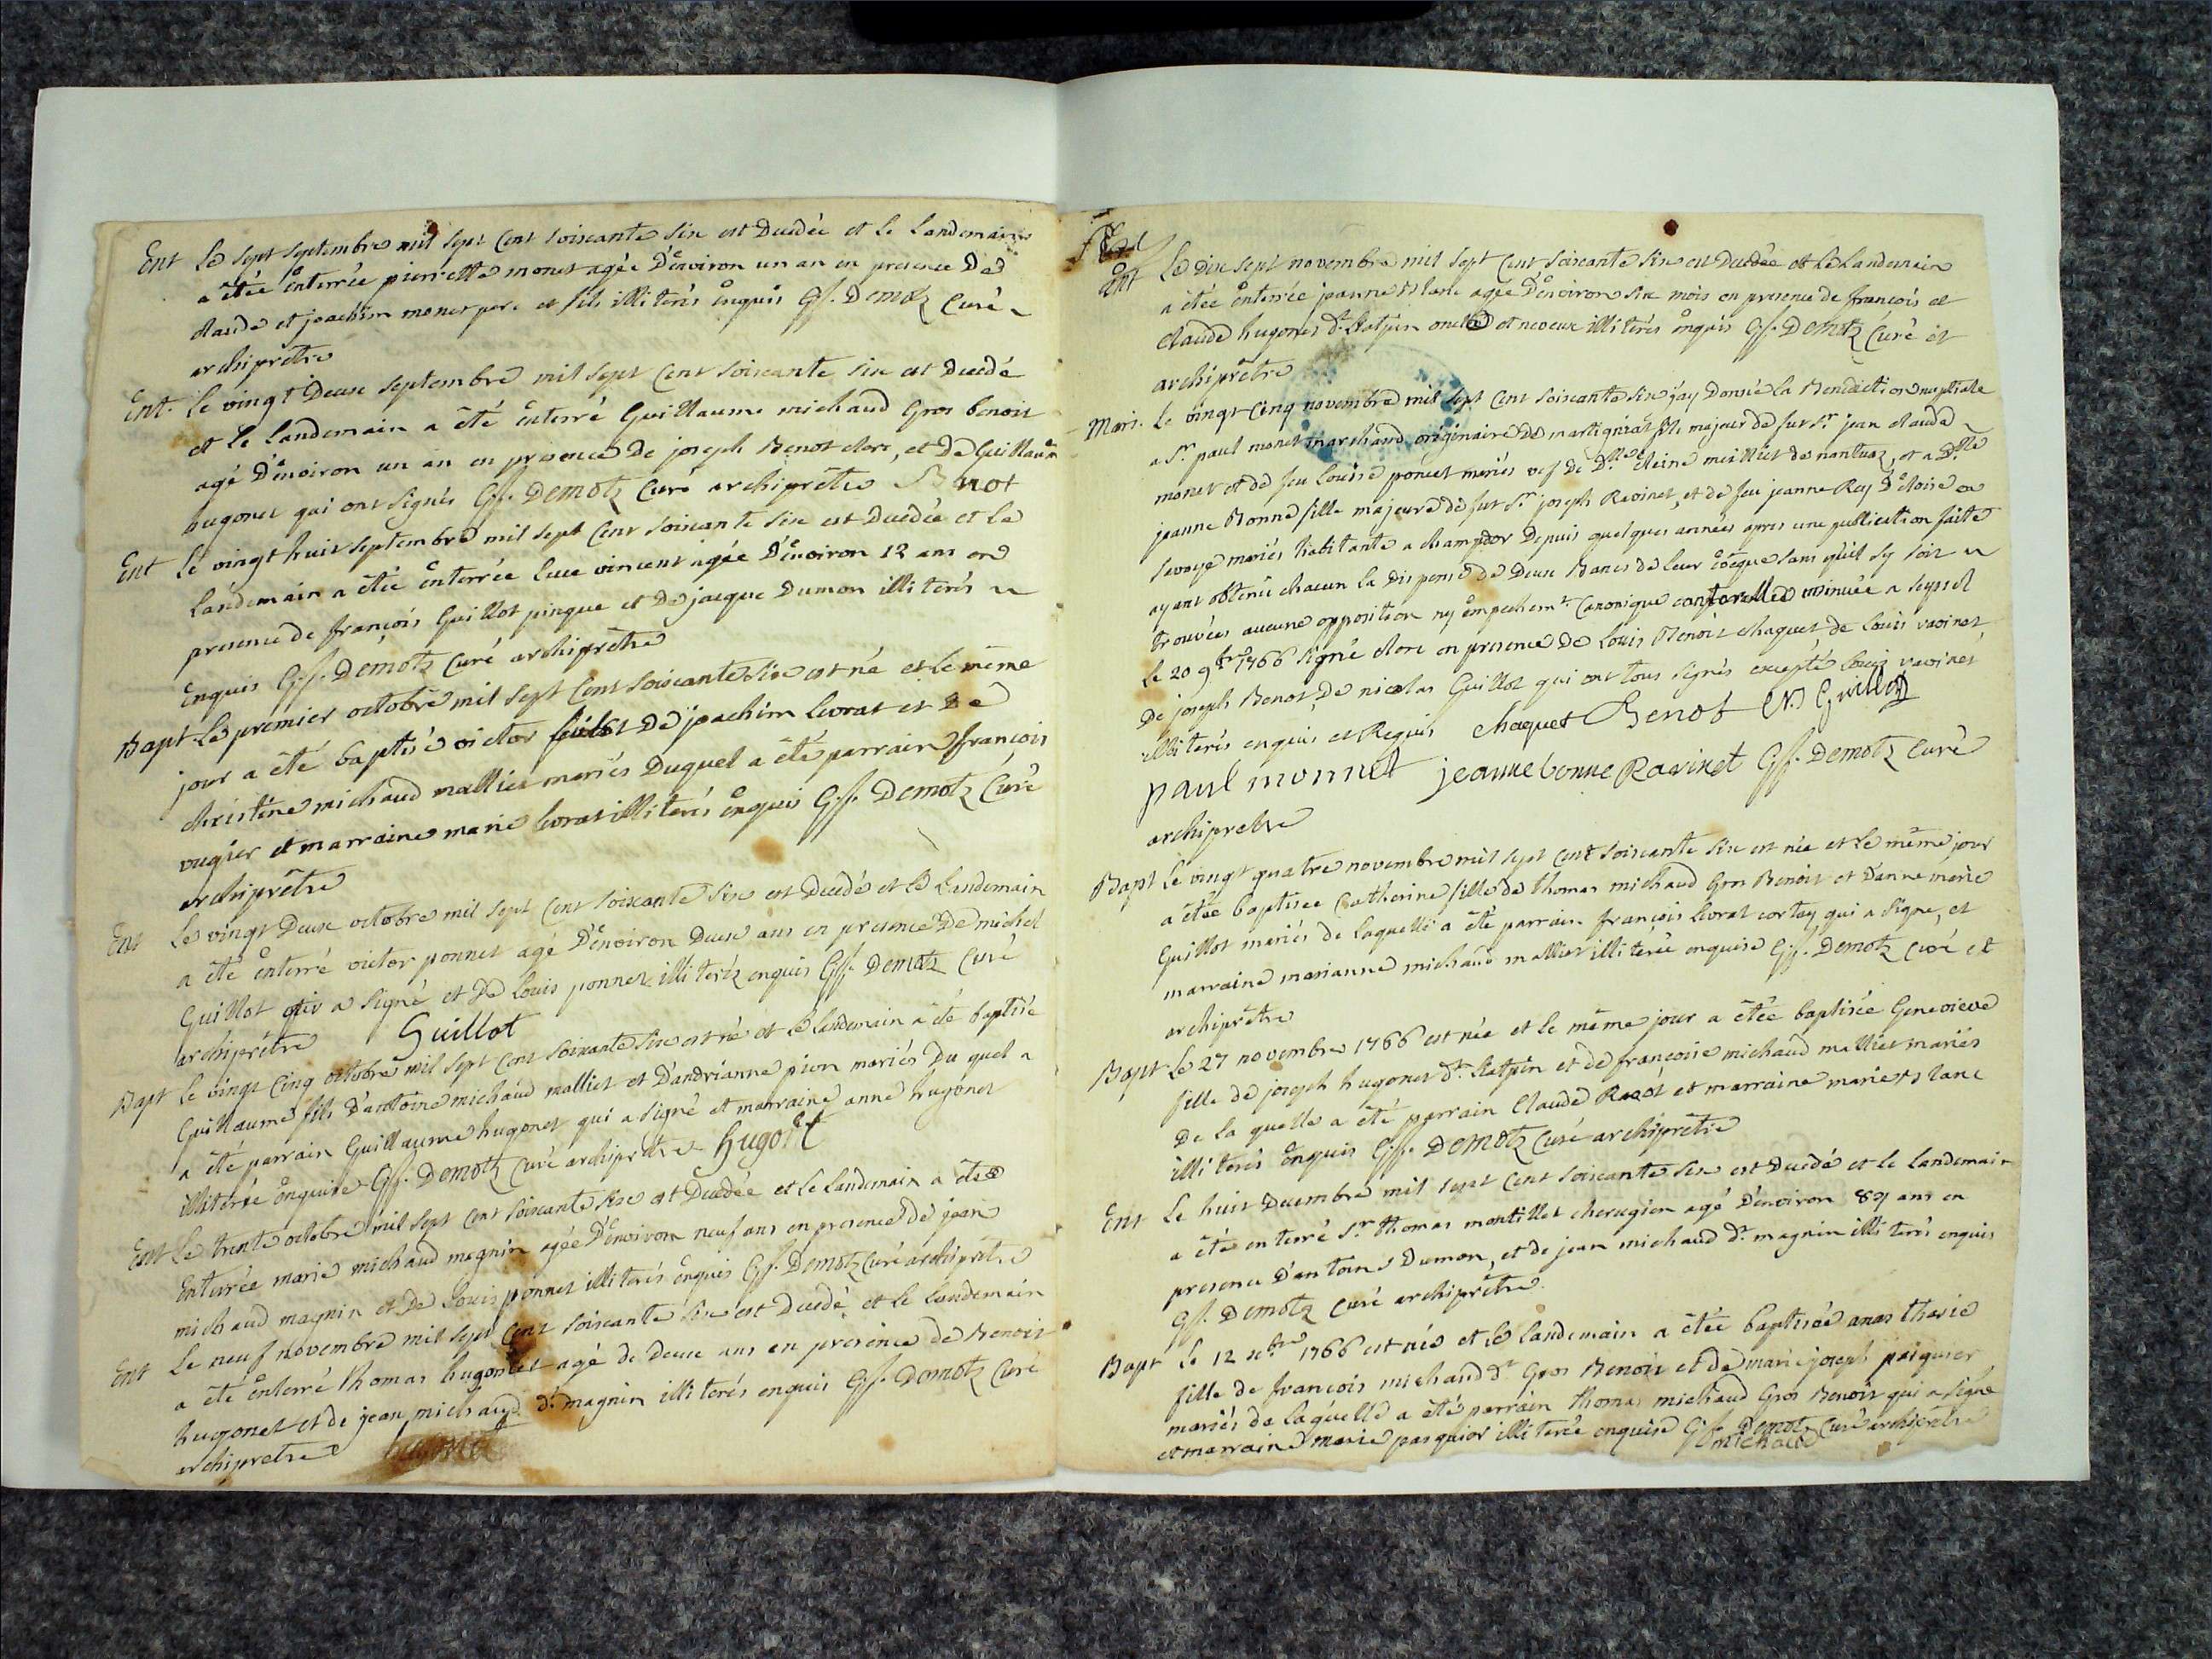 Ent Le sept septembre mil sept cent soixante six est decedée et le landemain
a étée enterrée pierrette monet agée d'environ un an en presence de
claude et joachim monet pere et fils illiterés enquis Gs. Demotz Curé
archiprêtre
Ent. le vingt deux septembre mil sept cent soixante six est decedé
et le landemain a été enterré Guillaume michaud Gros benoit
agé d'environ un an en presence de joseph Benot clerc, et de Guillaume
hugonet qui ont signés Gs. Demotz curé archiprêtre Benot
Ent le vingt huit septembre mil sept cent soixante six est decedée et le
landemain a étée enterrée luce vincent agée d'environ 12 ans en
presence de françois Guillot pingue et de jacque Dumon illiterés
enquis Gs. Demotz curé archiprêtre
Bapt Le premier octobre mil sept cent soixante six est né et le même
jour a été baptisé victor fils de joachim livrat et de
christine michaud malliet mariés duquel a été parrain françois
vugier et marraine marie livrat illiterés enquis Gs. Demotz Curé
archiprêtre
Ent Le vingt deux octobre mil sept cent soixante six est decedé et le landemain
a été enterré victor ponnet agé d'environ deux ans en presence de michel
Guillot qui a signé et de louis ponnet illiteréz enquis Gs. Demotz curé
archiprêtre Guillot
Bapt le vingt cinq octobre mil sept cent soixante six est né et le landemain a été baptisé
Guillaume fils d'antoine michaud malliet et d'andrianne pion mariés du quel a
a été parrain Guillaume hugonet qui a signé et marraine anne hugonet
illiterée enquise Gs. Demotz curé archiprêtre hugonet
Ent Le trente octobre mil sept cent soixante six est decedée et le landemain a étée
enterrée marie michaud magnin agée d'environ neuf ans en presence de jean
michaud magnin et de louis ponnet illiterés enquis Gs. Demotz curé archiprêtre
Ent Le neuf novembre mil sept cent soixante six est decedé et le landemain
a été enterré thomas hugonet agé de deux ans en presence de Benoit
hugonet et de jean michaud dt. magnin illiterés enquis Gs. Demotz Curé
archiprêtre hugonet
Ent Le dix sept novembre mil sept cent soixante six est decedée et le landemain
a étée enterrée jeanne Blanc agée d'environ six mois en presence de françois et
claude hugonet dt. oncle et neveux illiterés enquis Gs. Demotz Curé et
archiprêtre
Mari. Le vingt cinq novembre mil sept cent soixante six j'ay donné la Benediction nuptiale
a Sr. paul monet marchand originaire de martignat fils majeur de fut Sr. jean claude
monet et de feu louise poncet mariés de Dlle. meilliet de nantuaz, et a Dlle
jeanne Bonne fille majeure de fut Sr. joseph Ravinet, et de feu jeanne Rey d'cloise en
savoye mariés habitante a champdor depuis quelques années apres une publication faite
ayant obtenu chacun la dispense de deux Bancs de leur evêque sans qu'il sy soit
trouvées aucune opposition ny empechemt. canonique a seyssel
le 20 9bre 1766 signé clerc en presence de louis Benoit chaquet de louis ravinet
De joseph Benot, De nicolas Guillot qui ont tous signés excepté louis ravinet
illiterés enquis et Requis chaquet Benot N. Guillot
paul monnet jeanne bonne Ravinet Gs. Demotz curé
archiprêtre
Bapt Le vingt quatre novembre mil sept cent soixante six est née et le même jour
a étée baptisée Catherine fille de thomas michaud Gros Benoit et d'anne marie
Guillot mariés de laquelle a été parrain françois livrat cortay qui a signe, et
marraine marianne michaud malliet illiterée enquise Gs. Demotz curé et
archiprêtre
Bapt Le 27 novembre 1766 est née et le même jour a étée baptisée Genevieve
fille de joseph hugonet dt. et de françoise michaud malliet mariés
De la quelle a été parrain Claude et marraine marie Blanc
illiterés enquis Gs. Demotz curé archiprêtre
Ent Le huit decembre mil sept cent soixante six est decedé et le landemain
a été enterré Sr. thomas montillet cherugien agé d'environ ans en
presence d'antoine Dumon, et de jean michaud dt. magnin illiterés enquis
Gs. Demotz curé archiprêtre.
Bapt le 12 xbre 1766 est née et le landemain a étée baptisée anas thasie
fille de françois michaud dt Gros Benoit et de marie joseph pasquier
mariés de laquelle a été parrain thomas michaud Gros Benoit qui a signe
et marraine marie pasquier illiterée enquise Gs. Demotz curé archiprêtre
michaud